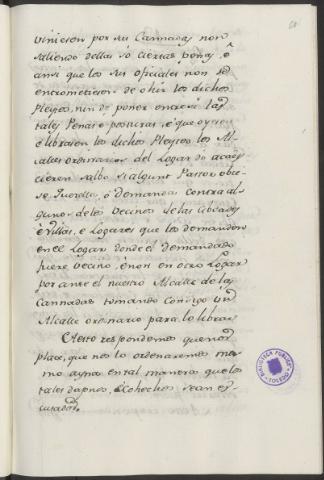 vinieren por sus Cannadas non
saliendo dellas só ciertas penas, é
ansi que los sus oficiales non se
entrometiesen de ohir los dichos
Pleytos, nin de poner entre
tales Penas é posturas, é que oyesen
e librasen los dichos Pleytos los Al-
caldes ordinarios del Logar do acaes-
cieren salbo si algunt Pastor obie-
se Querella, ó demanda contra al-
guno de los vecinos de las Cibdades
é villas, e Logares que los demanden
en el Logar donde el demandado
fuere vecino, é non en otro Logar
por ante el nuestro Alcalde de las
Cannadas tomando consigo un
Alcalle ordinario para lo librar
A esto respondemos que nos
place, que nos lo ordenaremos
mo ayna en tal manera que los
tales dapnos, é Cohechos sean es-
cusados.
BIBLIOTECA PUBLICA
TOLEDO